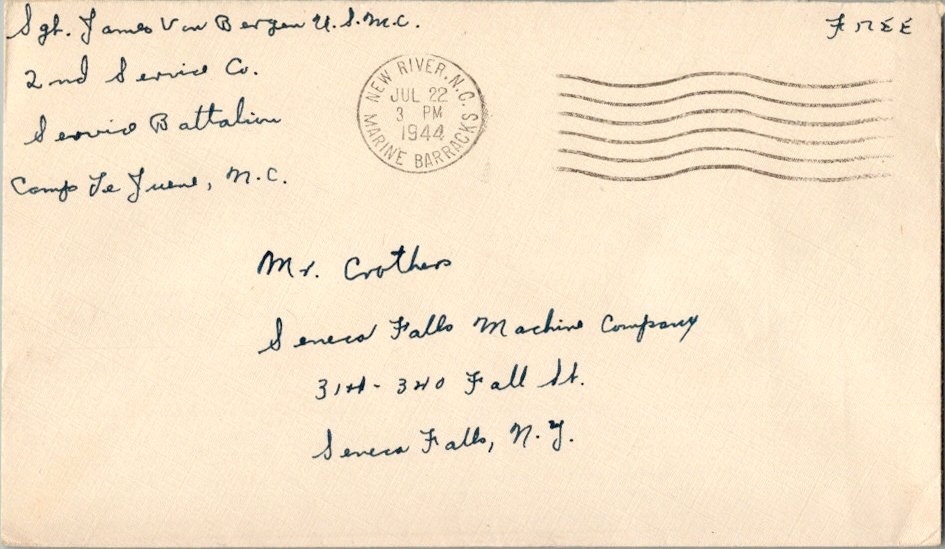 Sgt. James Van Bergen U.S.M.C.
FREE
2nd Service Co.
Service Battalion
Camp Le Juene, N.C.
NEW RIVER, N.C.
JUL 22
3 PM
1944
MARINE BARRACKS
Mr. Crothers
Seneca Falls Machine Company
314-340 Fall St.
Seneca Falls, N.Y.